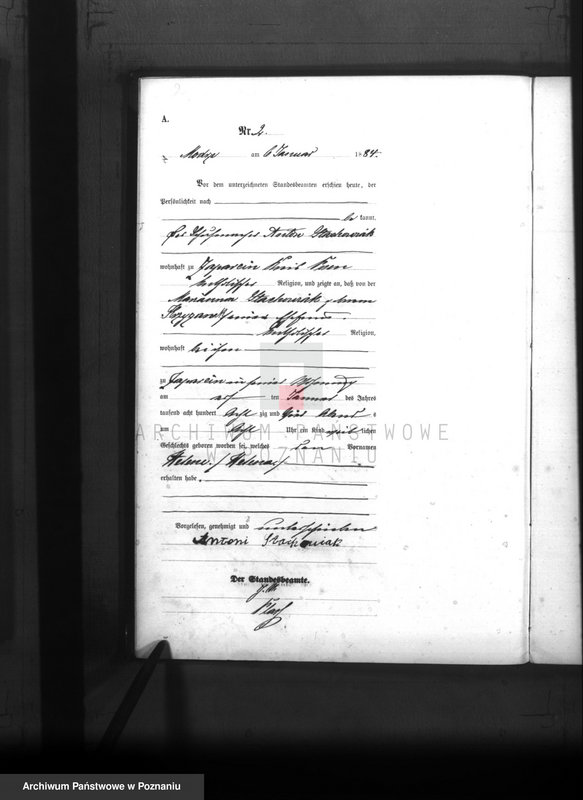 A.
Nr. 2.
am 6 Januar 1884.
Vor dem unterzeichneten Standesbeamten erschien heute, der
Persönlichkeit nach
be kannt,
der Schuhmacher Anton Stachowiak
wohnhaft zu Kreis
katholischer Religion, und zeigte an, daß von der
Marianna Stachowiak geborenen
seiner Ehefrau
katholischer Religion,
wohnhaft bei ihm
zu in seiner Wohnung
am ten Januar des Jahres
tausend acht hundert acht zig und vier Abends
um acht Uhr ein Kind weib lichen
Geschlechts geboren worden sei, welches den Vornamen
Helene
erhalten habe.
Vorgelesen, genehmigt und unterschrieben
Antoni Stachowiak
Der Standesbeamte.
ARCHIWUM PAŃSTWOWE
W POZNANIU
Archiwum Państwowe w Poznaniu